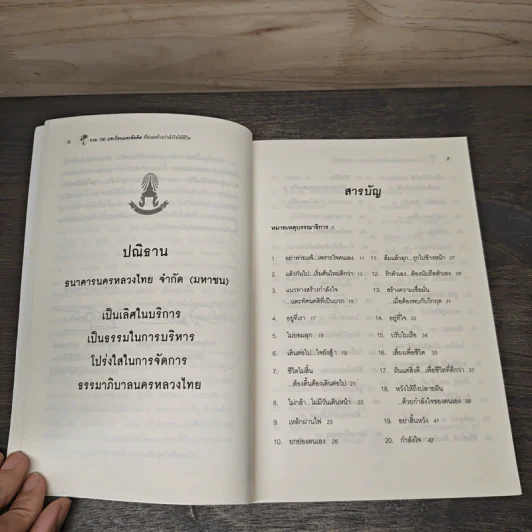 6 รวม 100 บทเรียนและข้อคิด ที่ช่วยสร้างกำลังใจให้ชีวิต
ปณิธาน
ธนาคารนครหลวงไทย จำกัด (มหาชน)
เป็นเลิศในบริการ
เป็นธรรมในการบริหาร
โปร่งใสในการจัดการ
ธรรมาภิบาลนครหลวงไทย
สารบัญ
หมายเหตุบรรณาธิการ 5
1. อย่าพ่ายแพ้...เพราะใจตนเอง 11
2. แล้วกันไป...เริ่มต้นใหม่ดีกว่า 12
3. แนวทางสร้างกำลังใจ
...และทัศนคติที่เป็นบวก 14
4. อยู่ที่เรา 17
5. ไม่ยอมลุก 18
6. เดินต่อไป...ใจยังสู้ ! 19
7. ชีวิตไม่สิ้น
...ต้องดิ้นต้องเดินต่อไป 21
8. ไม่กล้า...ไม่มีวันเดินหน้า 23
9. เหล็กผ่านไฟ 25
10. ยกย่องตนเอง 26
11. ล้มแล้วลุก...รุกไปข้างหน้า 27
12. รักตัวเอง...ต้องนับถือตัวเอง 28
13. สร้างความเชื่อมั่น
...เมื่อต้องพบกับวิกฤต 31
14. อยู่ที่ใจ 33
15. ปรับใบเรือ 34
16. เสี่ยงเพื่อชีวิต 35
17. ฝันแต่สิ่งดี...เพื่อชีวิตที่ดีกว่า 37
18. หวังให้ถึงปลายฝัน
...ด้วยกำลังใจของตนเอง 39
19. อย่าสิ้นหวัง 41
20. กำลังใจ 42